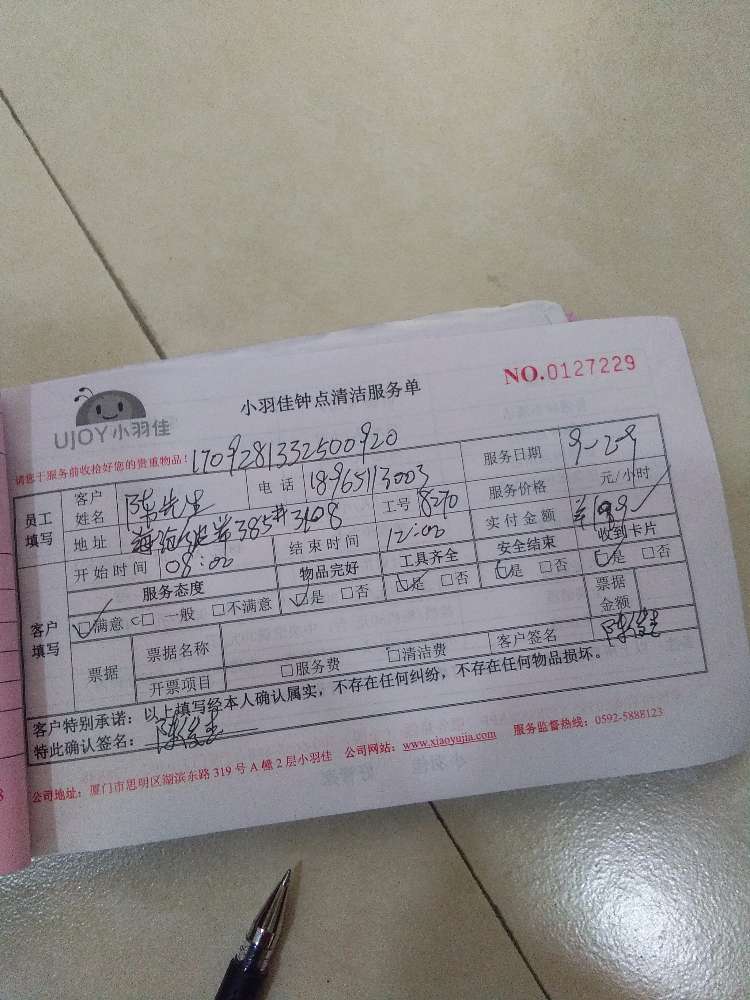 UJOY小羽佳
小羽佳钟点清洁服务单
NO.0127229
请您于服务前收拾好您的贵重物品！
1709281332500920
员工填写 客户姓名 陈先生 电话 18965113003 服务日期 9-29
地址 385# 3108 工号 8270 服务价格 元/小时
开始时间 08:00 结束时间 12:00 实付金额
客户填写 服务态度 物品完好 工具齐全 安全结束 收到卡片
□满意 □一般 □不满意 □是 □否 □是 □否 □是 □否 □是 □否
票据 票据名称 票据金额
开票项目 □服务费 □清洁费 客户签名
客户特别承诺：以上填写经本人确认属实，不存在任何纠纷，不存在任何物品损坏。
特此确认签名：
公司地址：厦门市思明区湖滨东路 319 号 A 幢 2 层小羽佳 公司网站：www.xiaoyujia.com 服务监督热线：0592-5888123